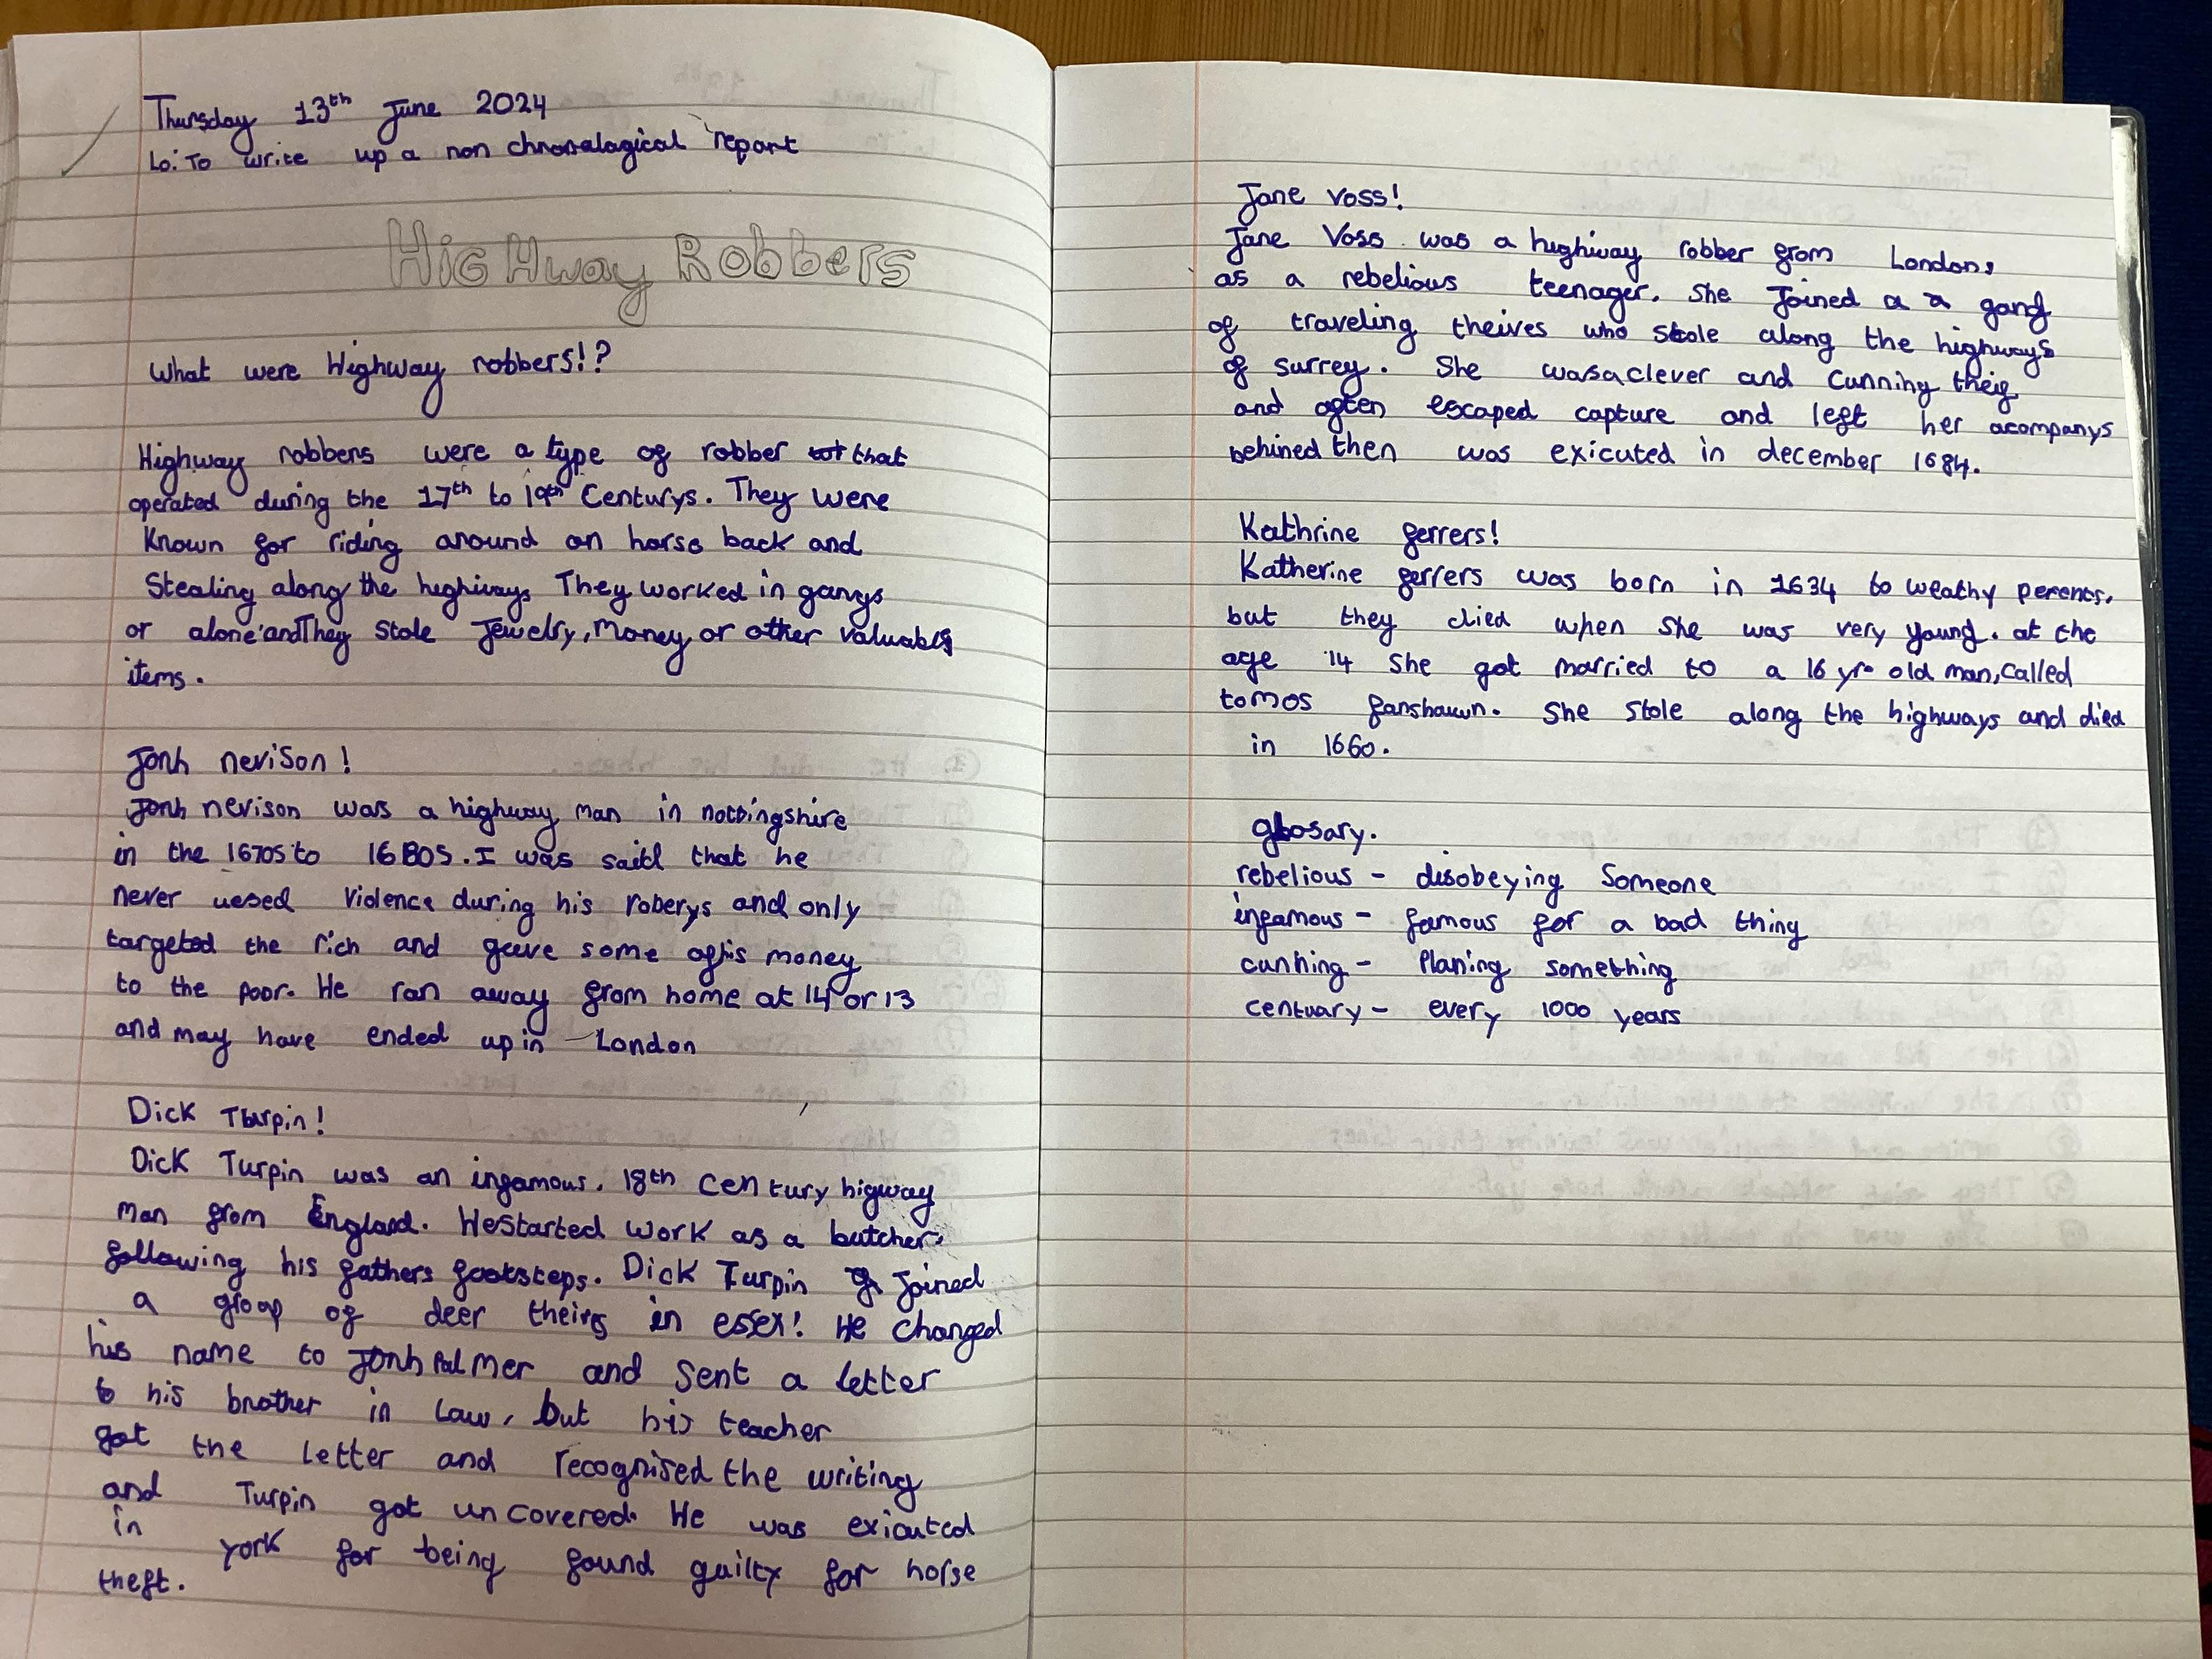 Thursday 13th June 2024
Lo: To write up a non chronalagical report
HigHway Robbers
What were Highway robbers!?
Highway robbers were a type of robber that
operated during the 17th to 19th Centurys. They were
Known for riding around on horse back and
Stealing along the highways They worked in gangs
or alone and They stole Jewelry, money or other valuables
items.
Jonh nevison!
Jonh nevison was a highway man in nottingshire
in the 1670s to 1680s. I was said that he
never uesed violence during his roberys and only
targeted the rich and gave some ofhis money
to the poor. He ran away from home at 14 or 13
and may have ended up in London
Dick Turpin!
Dick Turpin was an infamous. 18th Century higway
man from England. Hestarted work as a butcher,
following his fathers footsteps. Dick Turpin Joined
a group of deer theives in essex! He changed
his name to Jonh Palmer and sent a letter
to his brother in law, but his teacher
got the letter and recognised the writing
and Turpin got uncovered. He was exicuted
in york for being found guilty for horse
theft.
Jane Voss!
Jane Voss was a highway robber from London,
as a rebelious teenager. She Joined a a gang
of traveling theives who stole along the highways
of surrey. She wasaclever and cunning theif
and often escaped capture and left her acompanys
behined then was exicuted in december 1684.
Kathrine ferrers!
Katherine ferrers was born in 1634 to weathy perents,
but they died when she was very young. at the
age 14 she got married to a 16 yr old man, called
tomos fanshawn. She stole along the highways and died
in 1660.
glosary.
rebelious - disobeying Someone
infamous - famous for a bad thing
cunning - Planing something
centuary - every 1000 years